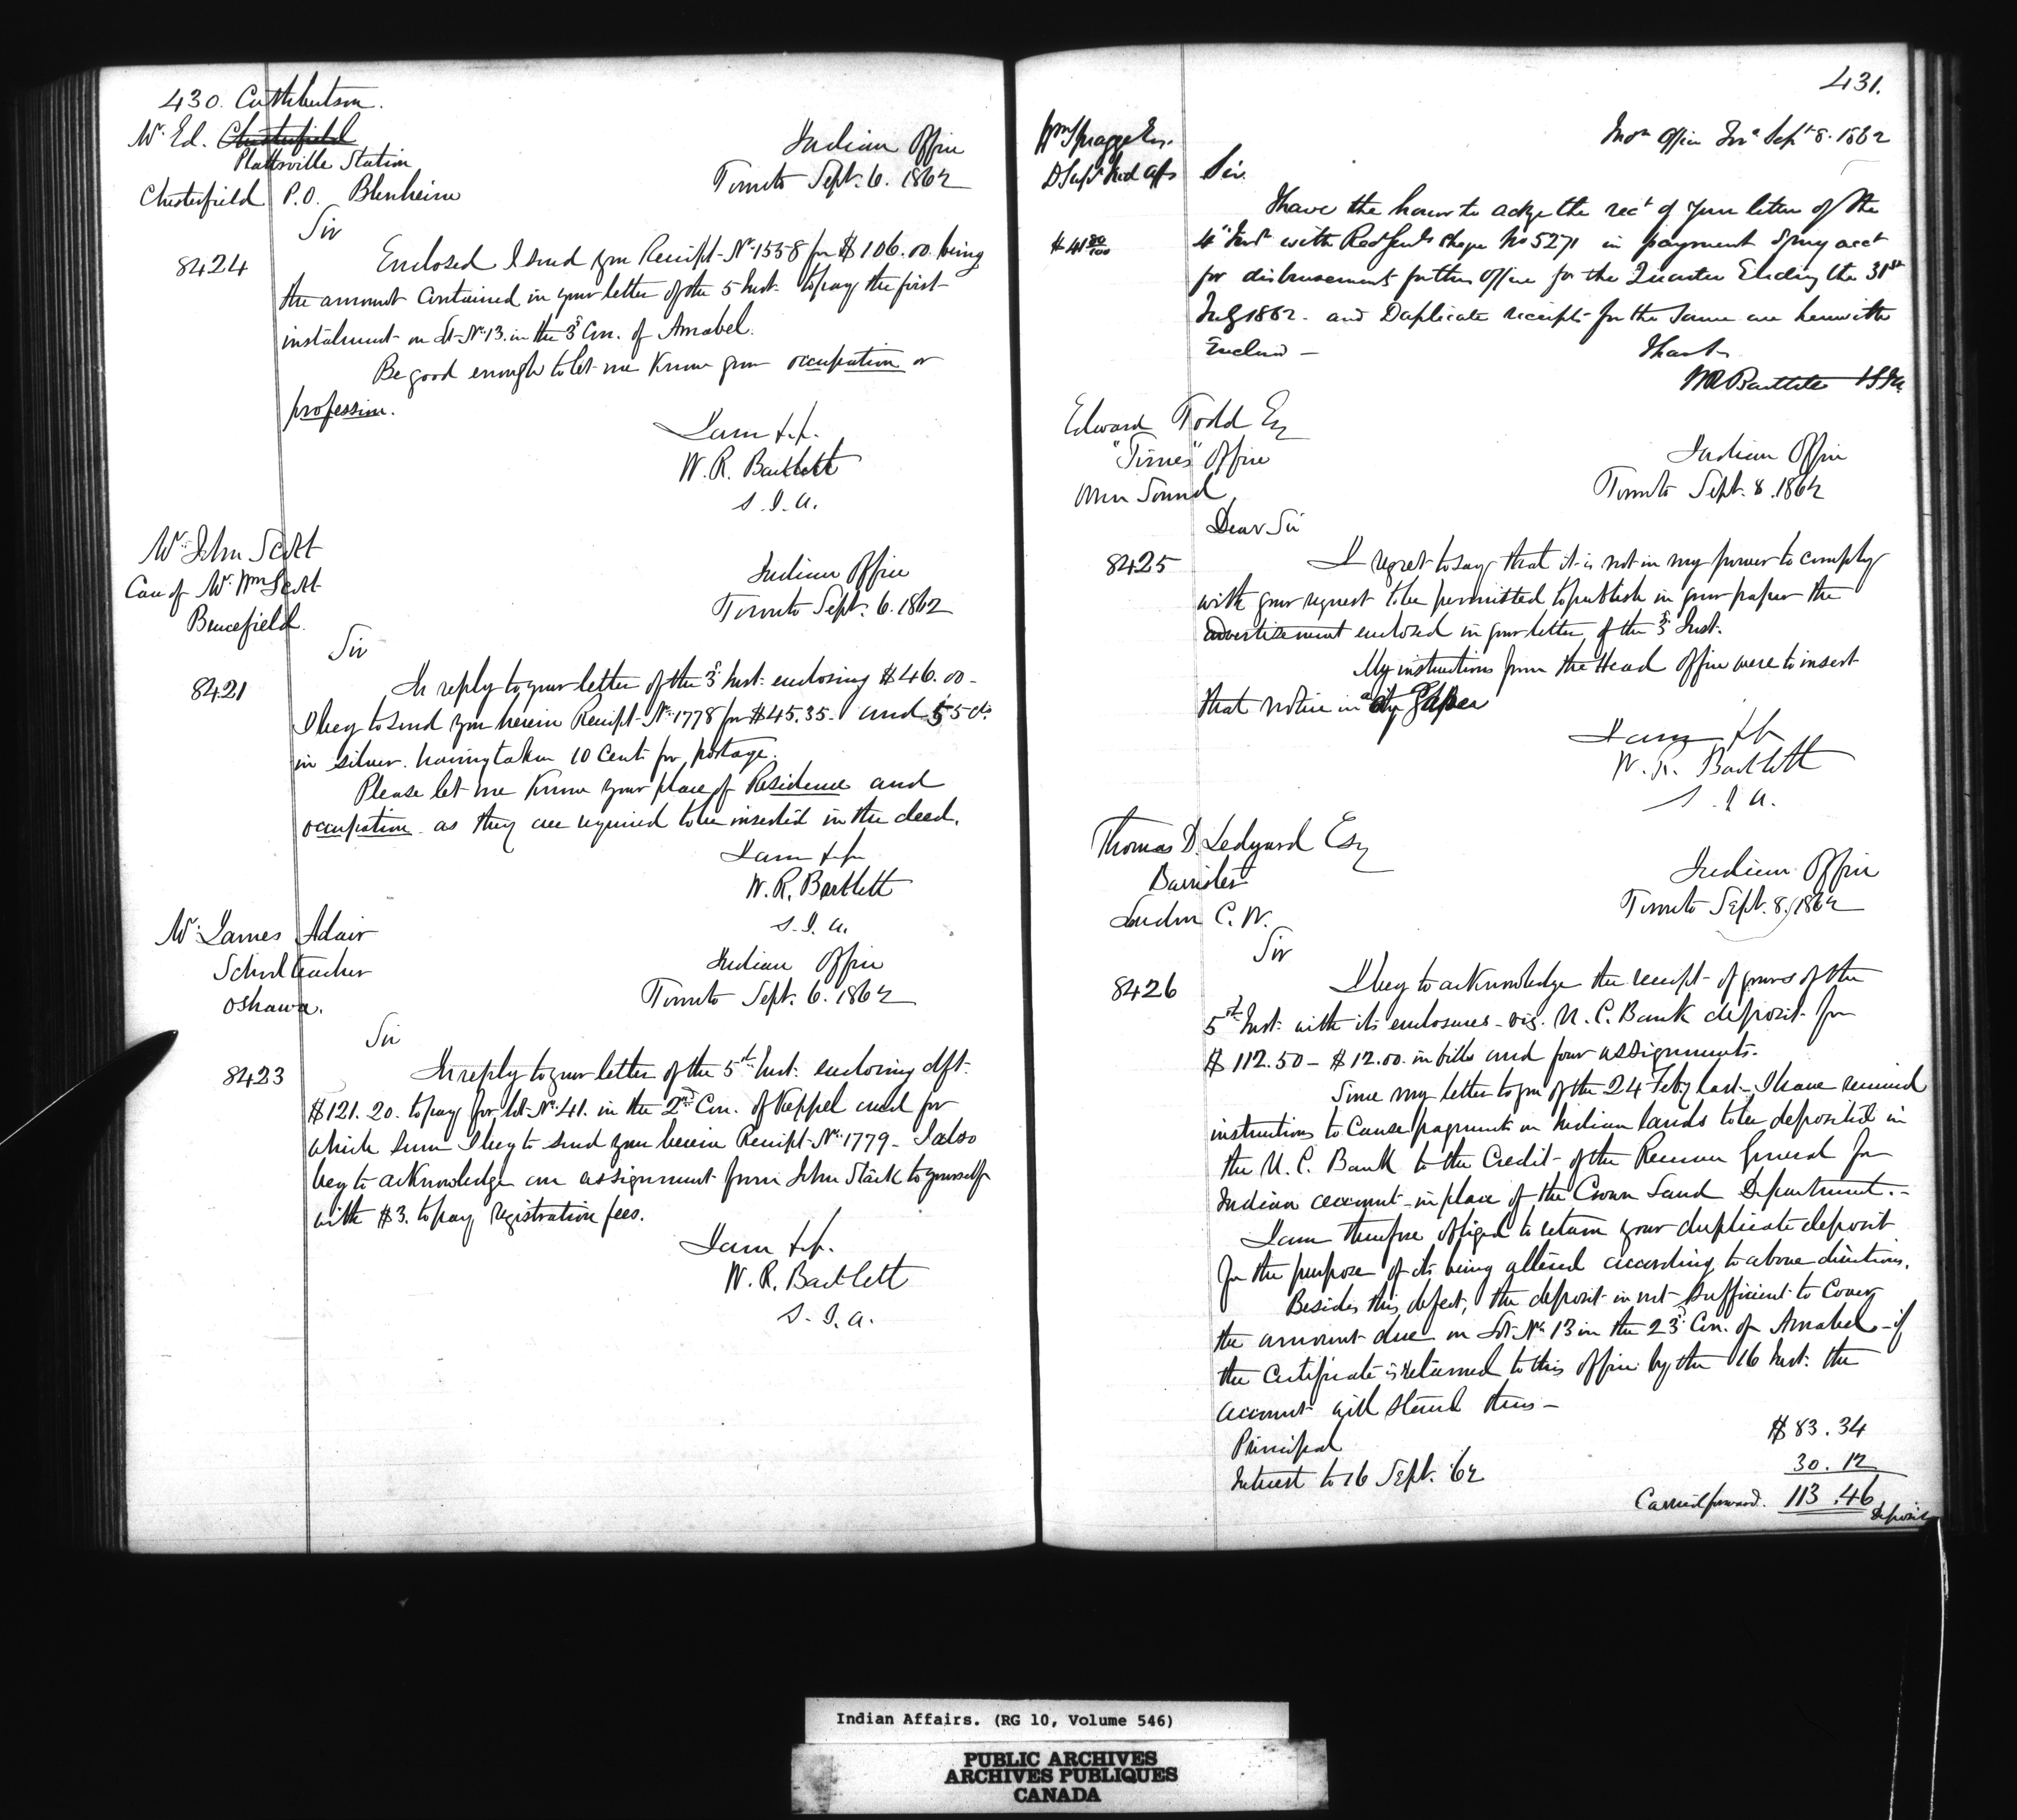 430. Cuthbertson.
Mr. Ed. Chesterfield
Plattsville Station
Chesterfield P.O. Blenheim
Indian Office
Toronto Sept. 6. 1862
Sir
8424
Enclosed I send you Receipt No. 1558 for $106.00 being
the amount contained in your letter of the 5 Inst. to pay the first
instalment on Lt. No. 13. in the 3d Con. of Amabel.
Be good enough to let me know your occupation or
profession.
I am &c.
W. R. Bartlett
S. I. A.
Mr. John Scott
Care of Mr. Wm Scott
Brucefield.
Indian Office
Toronto Sept. 6. 1862
Sir
8421
In reply to your letter of the 3d Inst. enclosing $46.00 -
I beg to send you herein Receipt No. 1778 for $45.35 - and 55 cts.
in silver. having taken 10 Cents for postage.
Please let me know your place of Residence and
occupation as they are required to be inserted in the deed.
I am &c
W. R. Bartlett
S. I. A.
Mr. James Adair
School teacher
Oshawa.
Indian Office
Toronto Sept. 6. 1862
Sir
8423
In reply to your letter of the 5th Inst. enclosing dft.
$121.20. to pay for lot No. 41. in the 2nd Con. of Keppel and for
which sum I beg to send you herein Receipt No. 1779 - I also
beg to acknowledge an assignment from John Stark to yourself
with $3. to pay registration fees.
I am &c.
W. R. Bartlett
S. I. A.
431.
Wm Spragge Esq.
D Supt Ind Affs
Indn Office Toro Sept 8. 1862
Sir.
$41 80/100
I have the honor to ackge the rect of your letter of the
4th Inst with Cheque No 5271 in payment of my acct
for disbursements for this office for the Quarter Ending the 31st
July 1862 - and Duplicate receipts for the same are herewith
Enclosed -
I have &c
WR Bartlett
Edward Todd Esq
"Times" Office
Owen Sound
Indian Office
Toronto Sept. 8. 1862
Dear Sir
8425
I regret to say that it is not in my power to comply
with your request to be permitted to publish in your paper the
advertisement enclosed in your letter of the 3d Inst.
My instructions from the Head Office were to insert
that notice in a city Paper
I am &c
W. R. Bartlett
S. I. A.
Thomas D. Ledyard Esq
Barrister
London C. W.
Indian Office
Toronto Sept. 8. 1862
Sir
8426
I beg to acknowledge the receipt of yours of the
5th Inst. with its enclosures - viz. U. C. Bank deposit for
$112.50 - $12.00. in bills and four assignments.
Since my letter to you of the 24 Feby last - I have received
instructions to Cause payments on Indian Lands to be deposited in
the U. C. Bank to the Credit of the Receiver General for
Indian account - in place of the Crown Land Department. -
I am therefore obliged to return your duplicate deposit
for the purpose of its being altered according to above directions.
Besides this defect, the deposit is not sufficient to Cover
the amount due on Lot No. 13 in the 23d Con. of Amabel - if
the Certificate is returned to this Office by the 16 Inst. the
account will stand thus -
Principal $83.34
Interest to 16 Sept. '62 30.12
Carried forward. 113.46
Deposit
Indian Affairs. (RG 10, Volume 546)
PUBLIC ARCHIVES
ARCHIVES PUBLIQUES
CANADA